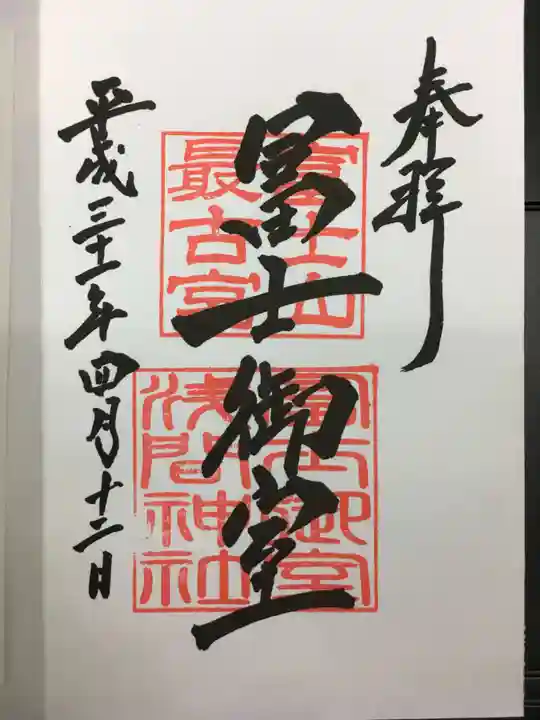 奉拝
冨士御室
富士山
最古宮
冨士御室
浅間神社
平成三十一年四月十二日